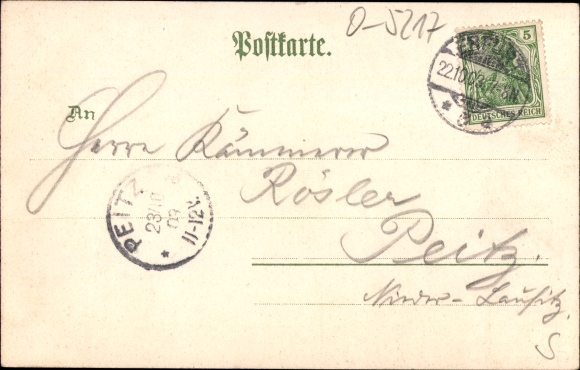 O-5217
Postkarte.
5
DEUTSCHES REICH
An
Herrn Kämmerer
Rösler
Peitz.
Nieder-Lausitz.
S
PEITZ
23/10
09
11-12V.